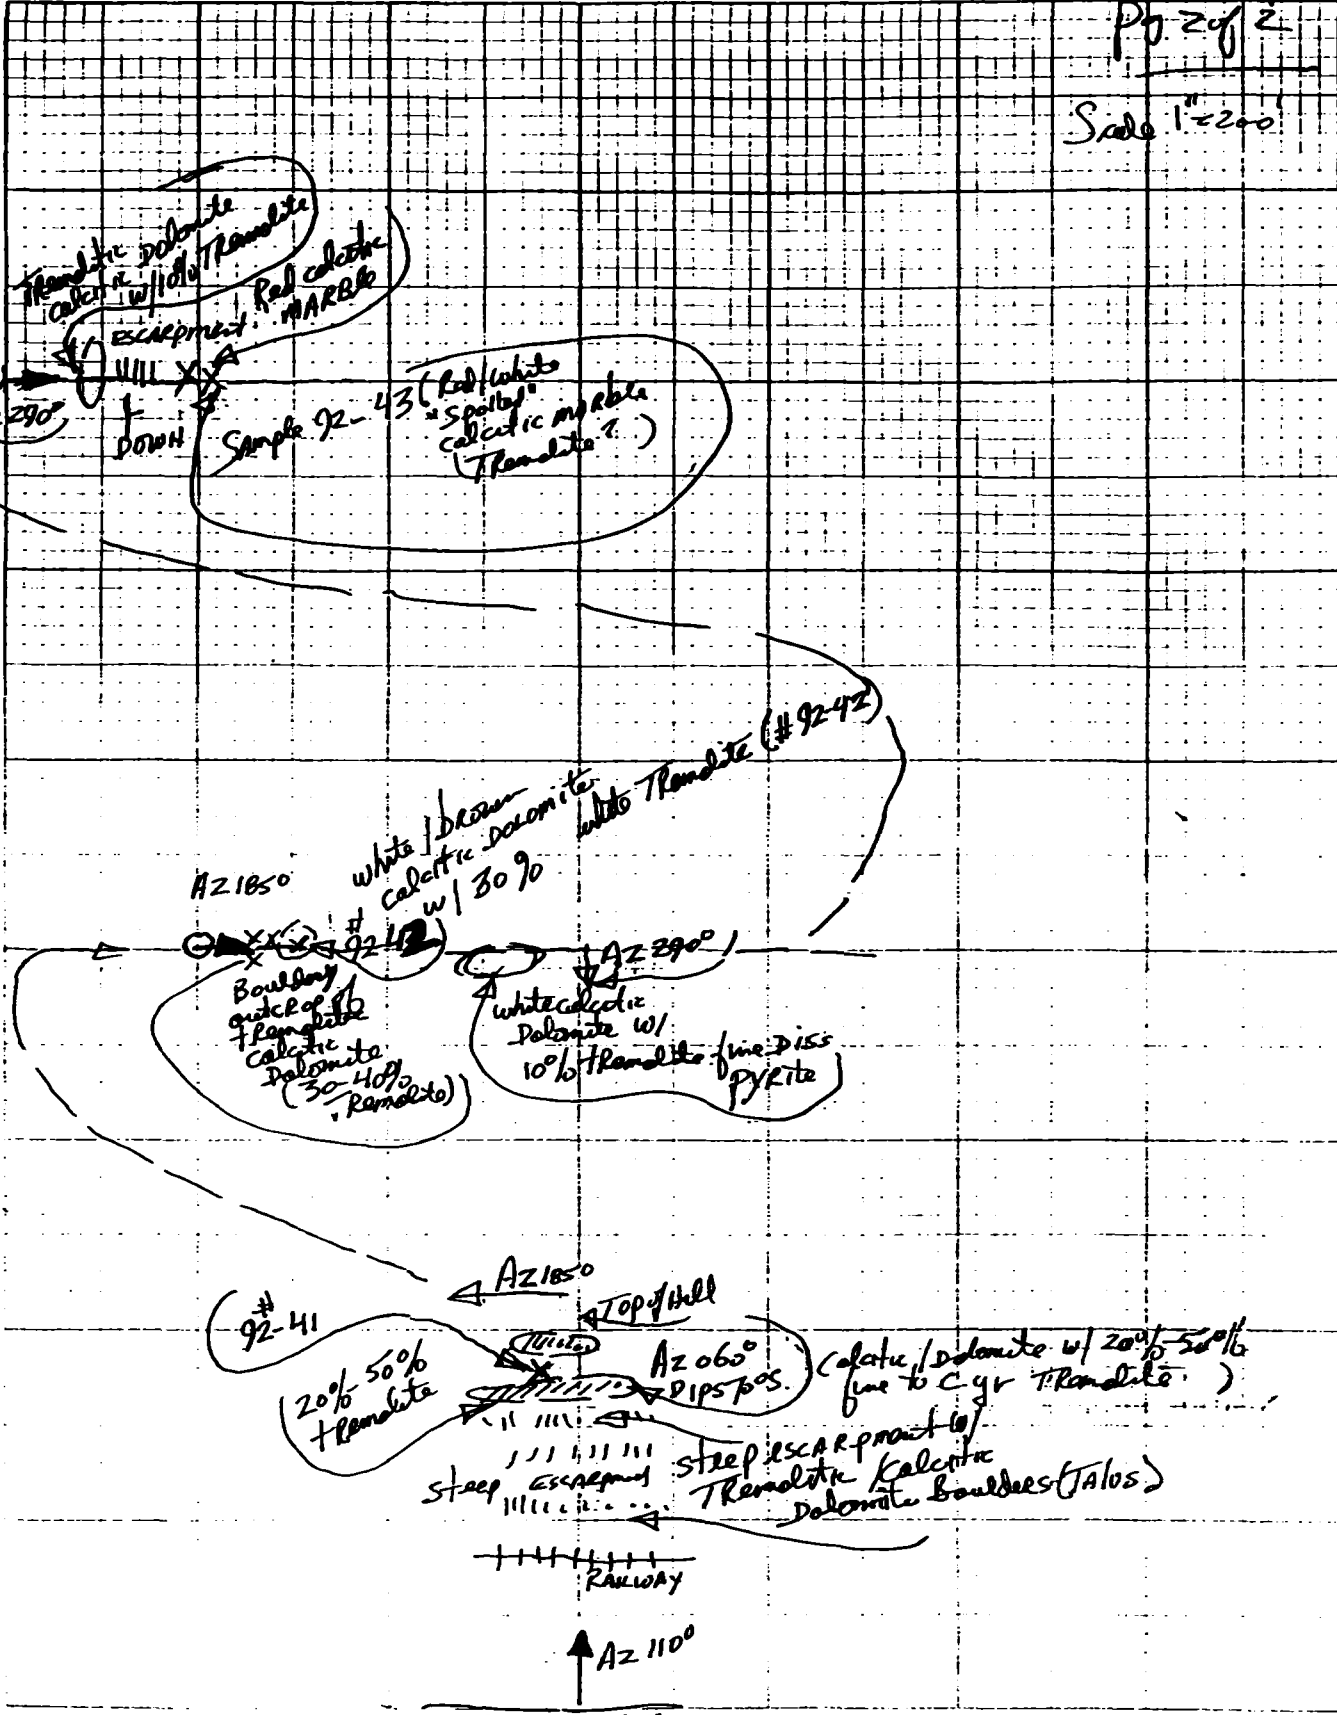 Pg 2 of 2
Scale 1"=200'
TRemolitic Dolomite
calcitic
w/10% TRemolite
Red calcitic
MARBLE
ESCARPMENT
290°
DOWN
Sample 92-43 (Red/white
"Spotted"
calcitic maRble
(TRemolite?)
white/brown
calcitic Dolomite
w/ 30% white TRemolite (#92-42)
AZ 185°
#
92-42
AZ 290°
Bouldery
outcRop of
tRemolitic
calcitic
Dolomite
(30-40%
TRemolite)
white calcitic
Dolomite w/
10% tRemolite fine Diss
PYRite
AZ 185°
Top of Hill
#
92-41
20%-50%
tRemolite
AZ 060°
DIPS 70°S.
Calcitic/Dolomite w/ 20%-50%
fine to C gr TRemolite.
steep ESCARPMENT
steep escARpment w/
TRemolitic/calcitic
Dolomite Boulders (TAlus)
RAILWAY
AZ 110°